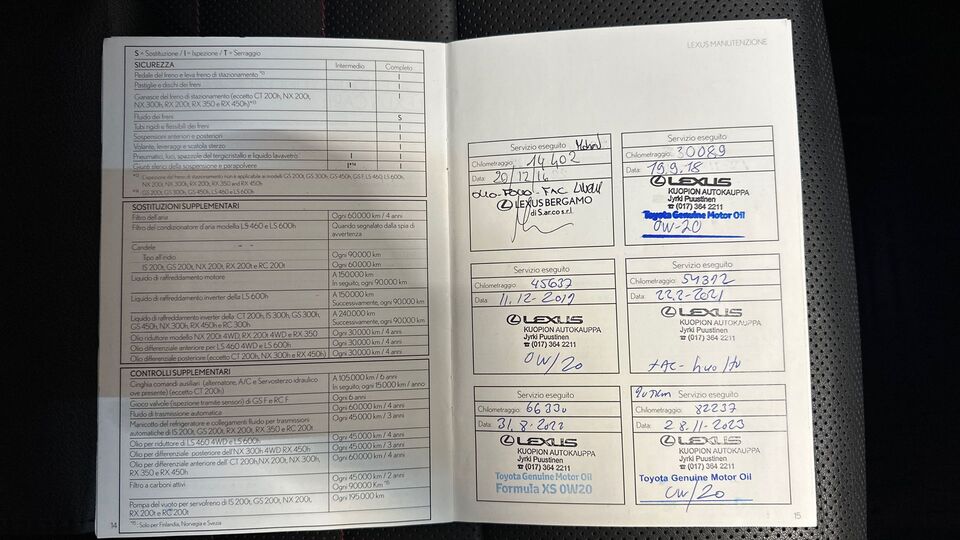 S = Sostituzione / I = Ispezione / T = Serraggio
SICUREZZA Intermedio Completo
Pedale del freno e leva freno di stazionamento *13 I
Pastiglie e dischi dei freni I I
Ganasce del freno di stazionamento (eccetto CT 200h, NX 200t,
NX 300h, RX 200t, RX 350 e RX 450h) I
Fluido dei freni S
Tubi rigidi e flessibili dei freni I
Sospensioni anteriori e posteriori I
Volante, leveraggi e scatola sterzo I
Pneumatici, luci, spazzole del tergicristallo e liquido lavavetro I I
Giunti sferici della sospensione e parapolvere I*14 I
SOSTITUZIONI SUPPLEMENTARI
Filtro dell'aria Ogni 60.000 km / 4 anni
Filtro del condizionatore d'aria modella LS 460 e LS 600h Quando segnalato dalla spia di
avvertenza
Candele
Tipo all'iridio Ogni 90.000 km
IS 200t, GS 200t, NX 200t, RX 200t e RC 200t Ogni 60.000 km
Liquido di raffreddamento motore A 150.000 km
In seguito, ogni 90.000 km
Liquido di raffreddamento inverter della LS 600h A 150.000 km
Successivamente, ogni 90.000 km
Liquido di raffreddamento inverter della CT 200h, IS 300h, GS 300h,
GS 450h, NX 300h, RX 450h e RC 300h A 240.000 km
Successivamente, ogni 90.000 km
Olio riduttore modello NX 200t 4WD, RX 200t 4WD e RX 350 Ogni 30.000 km / 4 anni
Olio differenziale anteriore per LS 460 4WD e LS 600h Ogni 30.000 km / 4 anni
Olio differenziale posteriore (eccetto CT 200h, NX 300h e RX 450h) Ogni 30.000 km / 4 anni
CONTROLLI SUPPLEMENTARI
Cinghia comandi ausiliari (alternatore, A/C e Servosterzo idraulico
ove presente) (eccetto CT 200h) A 105.000 km / 6 anni
In seguito, ogni 15.000 km / anno
Gioco valvole (ispezione tramite sensori) di GS F e RC F Ogni 6 anni
Fluido di trasmissione automatica Ogni 60.000 km / 4 anni
Manicotto del refrigeratore e collegamenti fluido per trasmissioni
automatiche di IS 200t, GS 200t, RC 200t, RX 350 e RC 200t Ogni 45.000 km / 3 anni
Olio per riduttore di LS 460 4WD e LS 600h Ogni 45.000 km / 4 anni
Olio per differenziale posteriore dell'NX 300H 4WD RX 450h Ogni 45.000 km / 3 anni
Olio per differenziale anteriore dell' CT 200h, NX 200t, NX 300h,
RX 350 e RX 450h Ogni 60.000 km / 4 anni
Filtro a carboni attivi Ogni 45.000 km / 2 anni
Ogni 90.000 Km
Pompa del vuoto per servofreno di IS 200t, GS 200t, NX 200t,
RX 200t e RC 200t Ogni 195.000 km
: Solo per Finlandia, Norvegia e Svezia
14
LEXUS MANUTENZIONE
Servizio eseguito
Chilometraggio: 14402
Data: 20/12/16
LEXUS BERGAMO
di S.ar.co s.r.l.
Servizio eseguito
Chilometraggio: 30089
Data: 19.9.18
LEXUS
KUOPION AUTOKAUPPA
Jyrki Puustinen
☎ (017) 364 2211
Toyota Genuine Motor Oil
0W-20
Servizio eseguito
Chilometraggio: 45637
Data: 11.12-2019
LEXUS
KUOPION AUTOKAUPPA
Jyrki Puustinen
☎ (017) 364 2211
0W/20
Servizio eseguito
Chilometraggio: 54312
Data: 22.2-2021
LEXUS
KUOPION AUTOKAUPPA
Jyrki Puustinen
☎ (017) 364 2211
Servizio eseguito
Chilometraggio: 66330
Data: 31.8-2022
LEXUS
KUOPION AUTOKAUPPA
Jyrki Puustinen
☎ (017) 364 2211
Toyota Genuine Motor Oil
Formula XS 0W20
Servizio eseguito
Chilometraggio: 82237
Data: 28.11-2023
LEXUS
KUOPION AUTOKAUPPA
Jyrki Puustinen
☎ (017) 364 2211
Toyota Genuine Motor Oil
0W/20
15